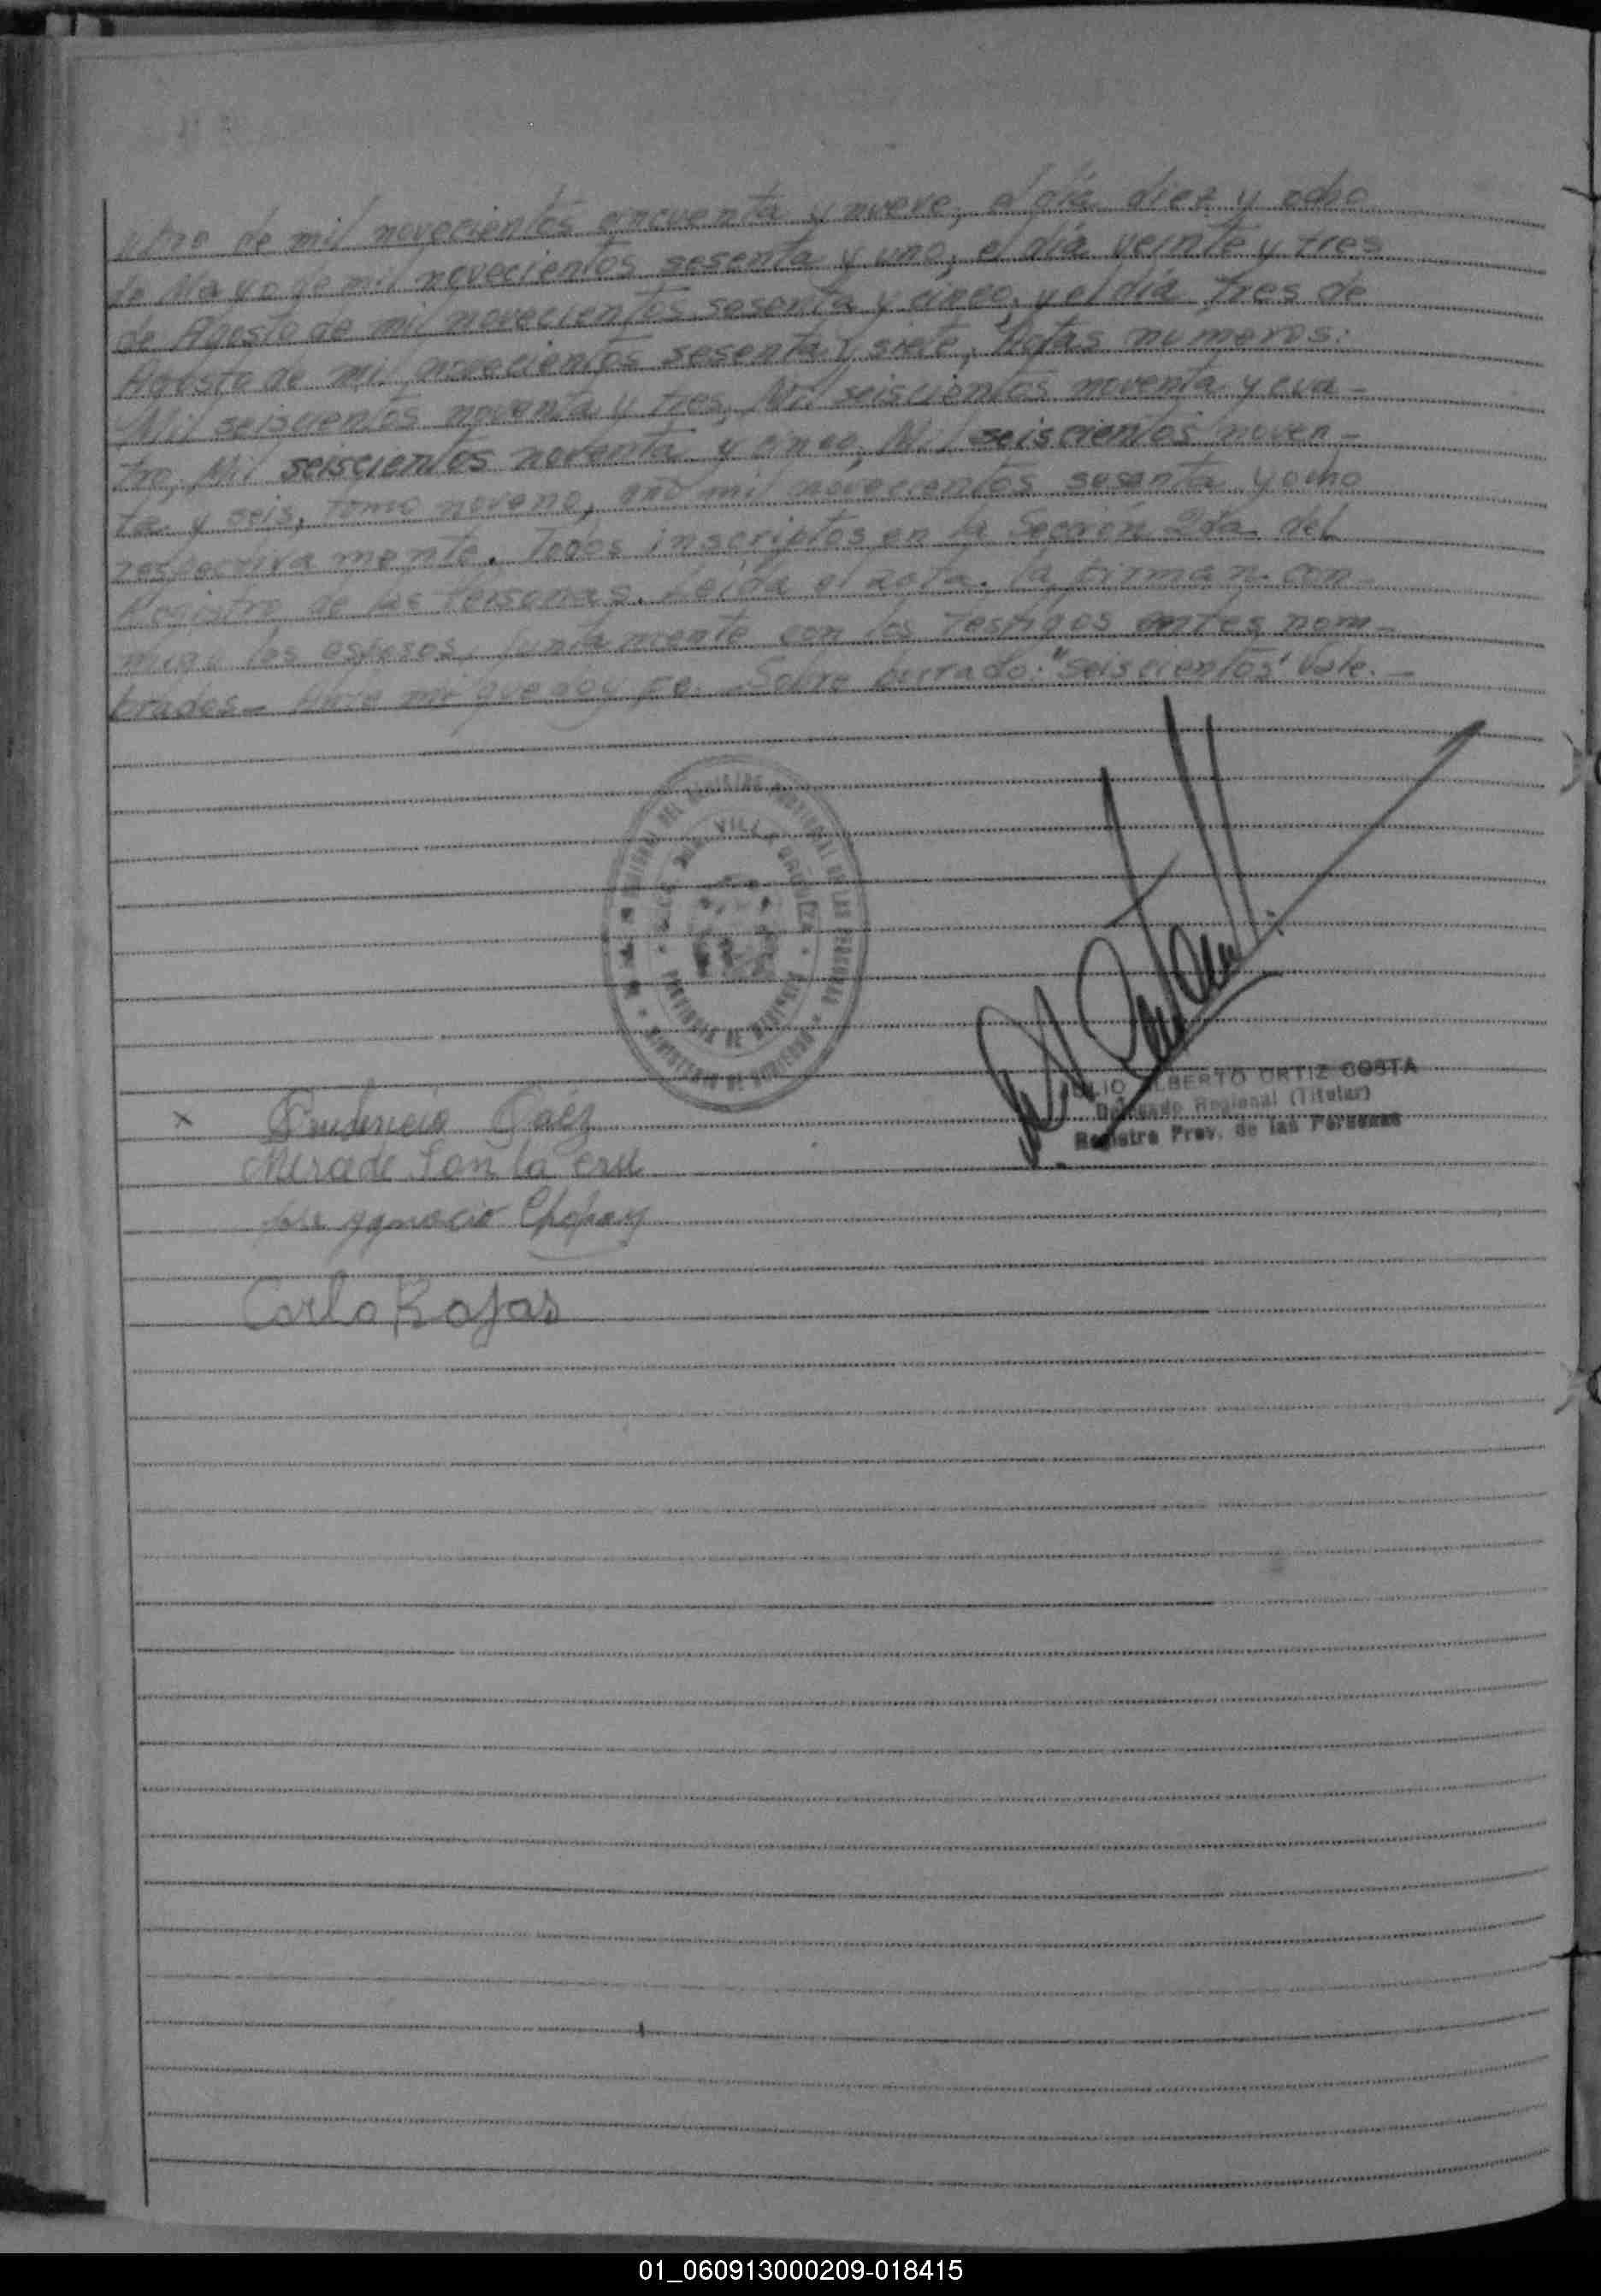 ubre de mil novecientos cincuenta y nueve, el día diez y ocho
de Mayo de mil novecientos sesenta y uno, el día veinte y tres
de Agosto de mil novecientos sesenta y cinco, y el día tres de
Agosto de mil novecientos sesenta y siete, Actas numeros:
Mil seiscientos noventa y tres, Mil seiscientos noventa y cua-
tro, Mil seiscientos noventa y cinco, Mil seiscientos noven-
ta y seis, tomo noveno, año mil novecientos sesenta y ocho
respectivamente. Todos inscriptos en la Sección 2da del
Registro de las Personas. Leída el acta, la firman con-
migo los esposos, juntamente con los testigos antes nom-
brados- Ante mí que doy fe.- Sobre borrado: "seiscientos" Vale.-
DEL REGISTRO PROVINCIAL DE LAS PERSONAS
VILLA
PROVINCIA DE
MINISTERIO DE GOBIERNO
JULIO ALBERTO ORTIZ COSTA
Delegado Regional (Titular)
Registro Prov. de las Personas
x Prudencio Paéz
Mirade
José Ygnacio
Carlo Rojas
01_060913000209-018415